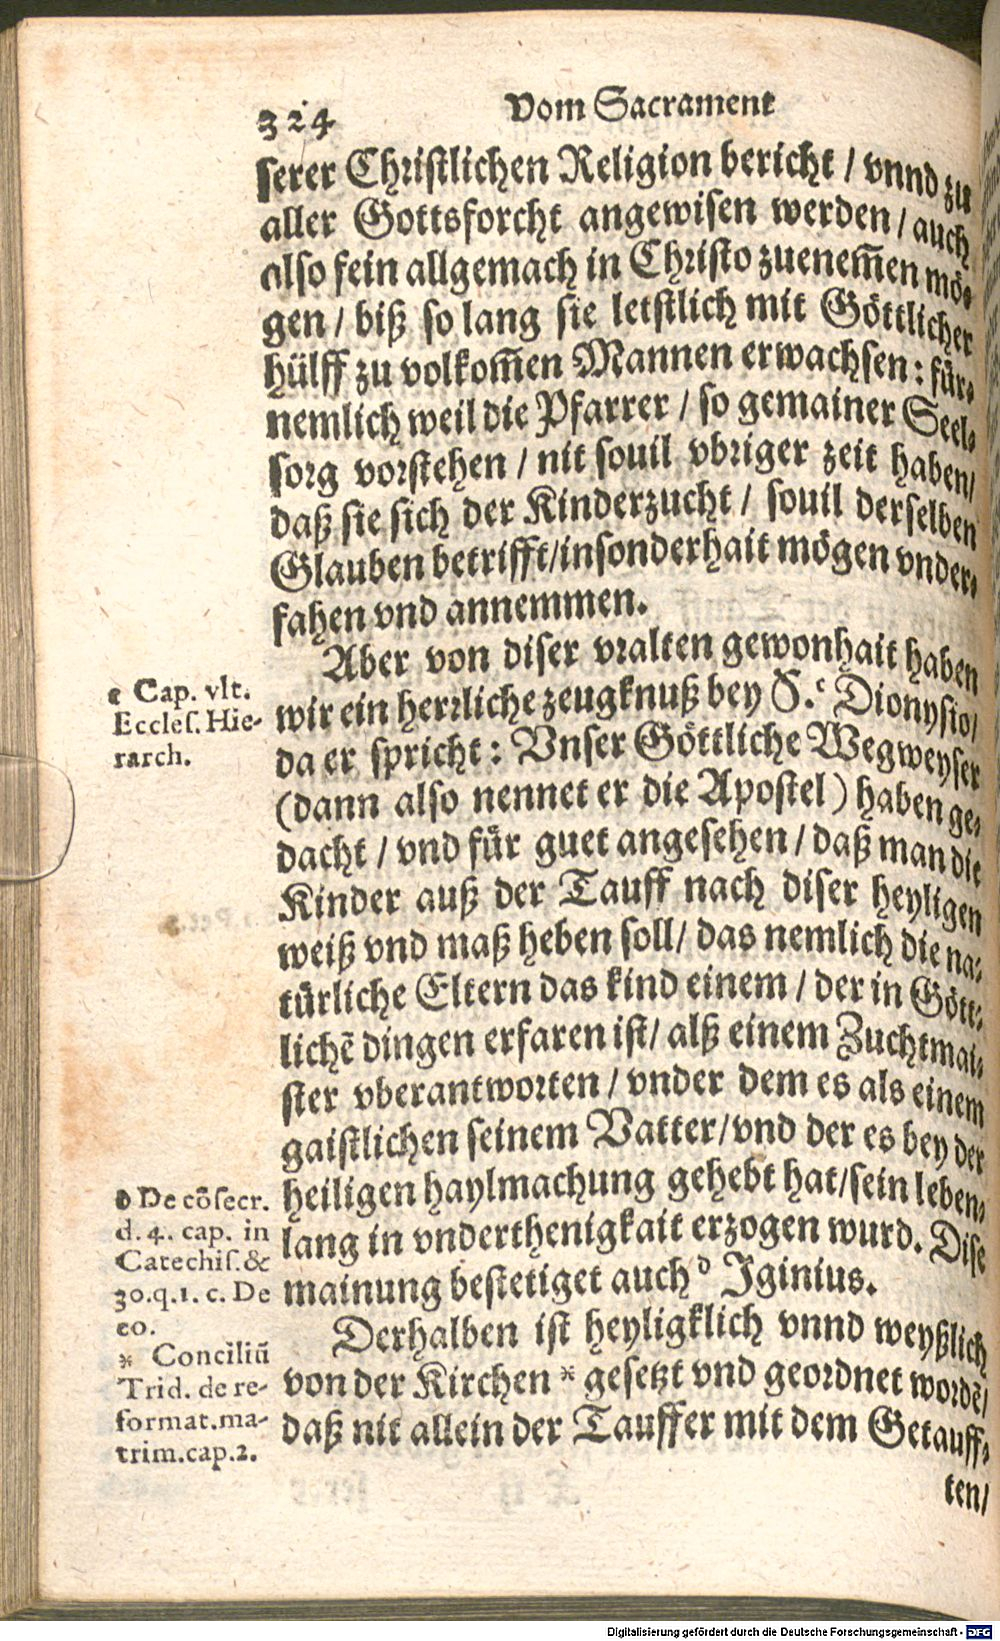 324 Vom Sacrament
serer Christlichen Religion bericht / vnnd zu
aller Gottsforcht angewisen werden / auch
also fein allgemach in Christo zuenem̃en mö⸗
gen / biß so lang sie letstlich mit Göttlicher
hülff zu volkom̃en Mannen erwachsen : für⸗
nemlich weil die Pfarrer / so gemainer Seel⸗
sorg vorstehen / nit souil vbriger zeit haben/
daß sie sich der Kinderzucht / souil derselben
Glauben betrifft/insonderhait mögen vnder⸗
fahen vnd annemmen.
Aber von diser vralten gewonhait haben
wir ein herrliche zeugknuß bey S. c Dionysio/
da er spricht : Vnser Göttliche Wegweyser
(dann also nennet er die Apostel) haben ge⸗
dacht / vnd für guet angesehen / daß man die
Kinder auß der Tauff nach diser heyligen
weiß vnd maß heben soll/ das nemlich die na⸗
türliche Eltern das kind einem / der in Gött⸗
lichẽ dingen erfaren ist/ alß einem Zuchtmai⸗
ster vberantworten / vnder dem es als einem
gaistlichen seinem Vatter/vnd der es bey der
heiligen haylmachung gehebt hat/sein leben⸗
lang in vnderthenigkait erzogen wurd. Dise
mainung bestetiget auch d Iginius.
Derhalben ist heyligklich vnnd weyßlich
von der Kirchen * gesetzt vnd geordnet wordẽ/
daß nit allein der Tauffer mit dem Getauff⸗
ten/
c Cap. vlt.
Eccles. Hie-
rarch.
d De cõsecr.
d. 4. cap. in
Catechis. &
30.q.1. c. De
eo.
* Conciliũ
Trid. de re-
format.ma-
trim.cap.2.
Digitalisierung gefördert durch die Deutsche Forschungsgemeinschaft - DFG